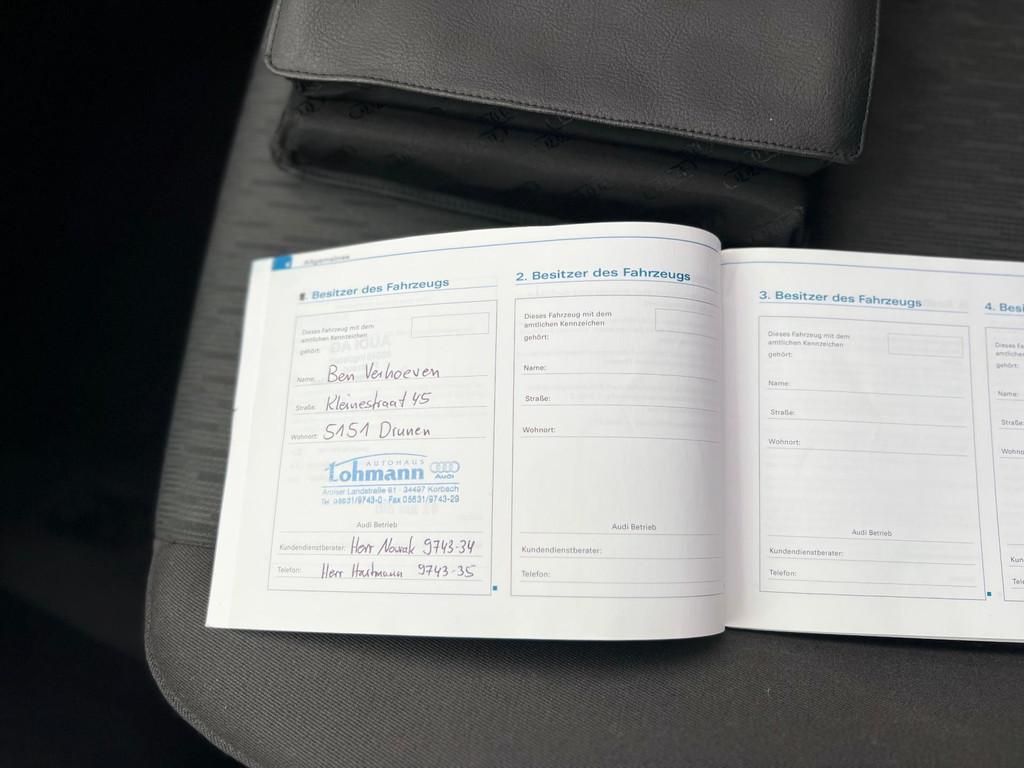 Allgemeines
1. Besitzer des Fahrzeugs
Dieses Fahrzeug mit dem
amtlichen Kennzeichen
gehört:
Name: Ben Verhoeven
Straße: Kleinestraat 45
Wohnort: 5151 Drunen
AUTOHAUS
Lohmann Audi
Arolser Landstraße 61 · 34497 Korbach
Tel. 05631/9743-0 · Fax 05631/9743-29
Audi Betrieb
Kundendienstberater: Herr Nowak 9743-34
Telefon: Herr Hartmann 9743-35
2. Besitzer des Fahrzeugs
Dieses Fahrzeug mit dem
amtlichen Kennzeichen
gehört:
Name:
Straße:
Wohnort:
Audi Betrieb
Kundendienstberater:
Telefon:
3. Besitzer des Fahrzeugs
Dieses Fahrzeug mit dem
amtlichen Kennzeichen
gehört:
Name:
Straße:
Wohnort:
Audi Betrieb
Kundendienstberater:
Telefon:
4. Besi
Dieses Fa
amtliche
gehört:
Name:
Straße
Wohno
Kun
Tele